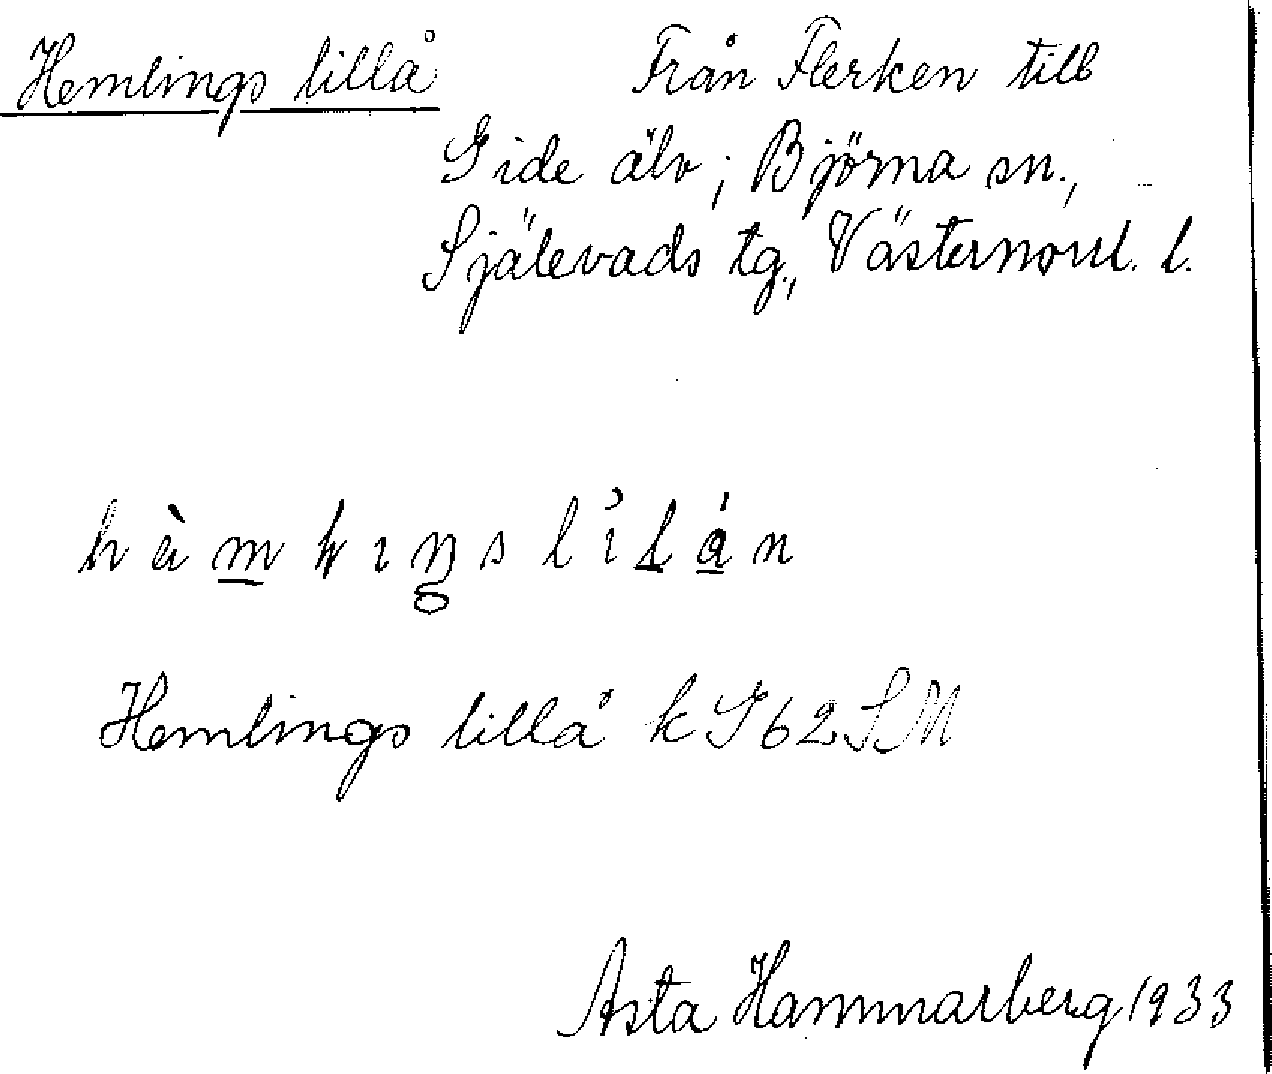 Hemlings lillå Från Flerken till
Gide älv; Björna sn.,
Själevads tg., Västernorrl. l.
Hemlings lillå k G62SM
Asta Hammarberg 1933